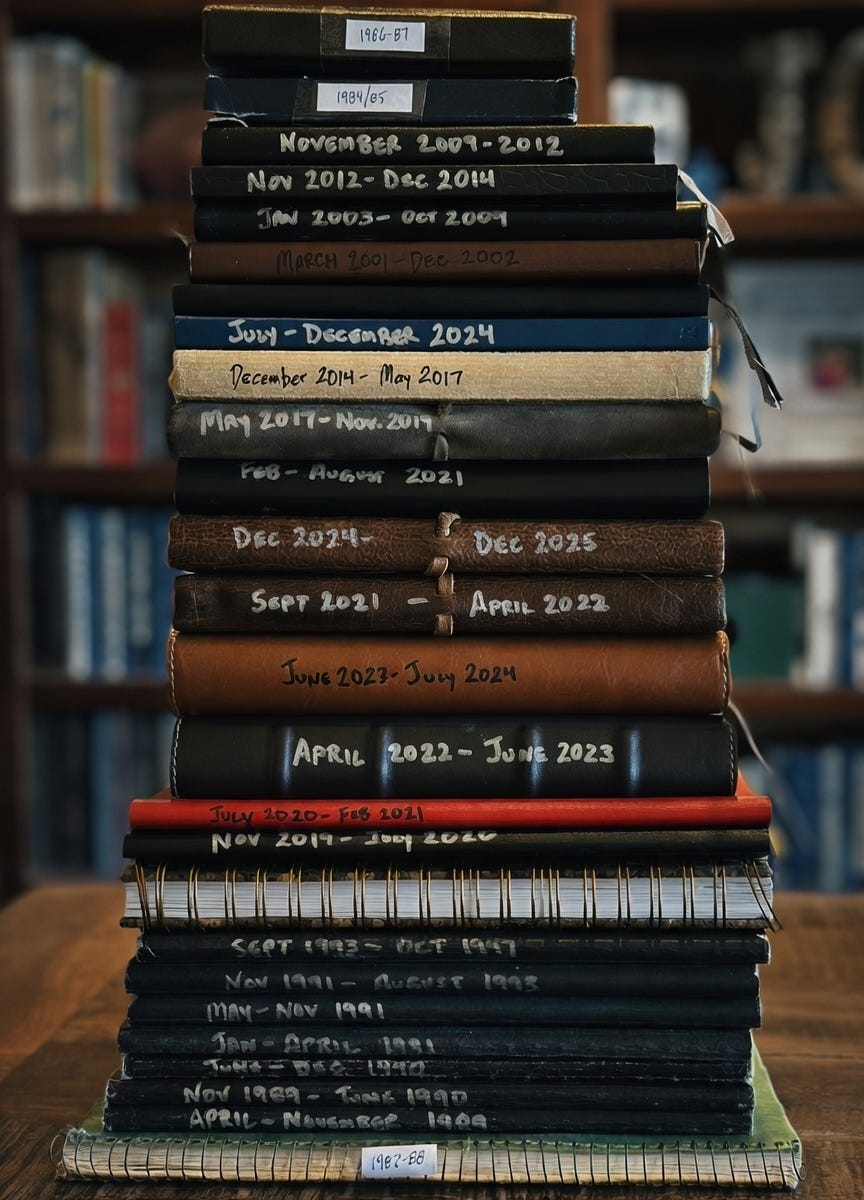 1986-87
1984/85
NOVEMBER 2009-2012
NOV 2012-DEC 2014
JAN 2003- OCT 2009
MARCH 2001-DEC 2002
JULY-DECEMBER 2024
December 2014- May 2017
MAY 2017-NOV. 2019
FEB- AUGUST 2021
DEC 2024- DEC 2025
SEPT 2021 - APRIL 2022
JUNE 2023-JULY 2024
APRIL 2022- JUNE 2023
JULY 2020- FEB 2021
NOV 2019- JULY 2020
SEPT 1993- OCT 1997
NOV 1991- AUGUST 1993
MAY-NOV 1991
JAN-APRIL 1991
JUNE- DEC 1990
NOV 1989- JUNE 1990
APRIL-NOVEMBER 1989
1987-88